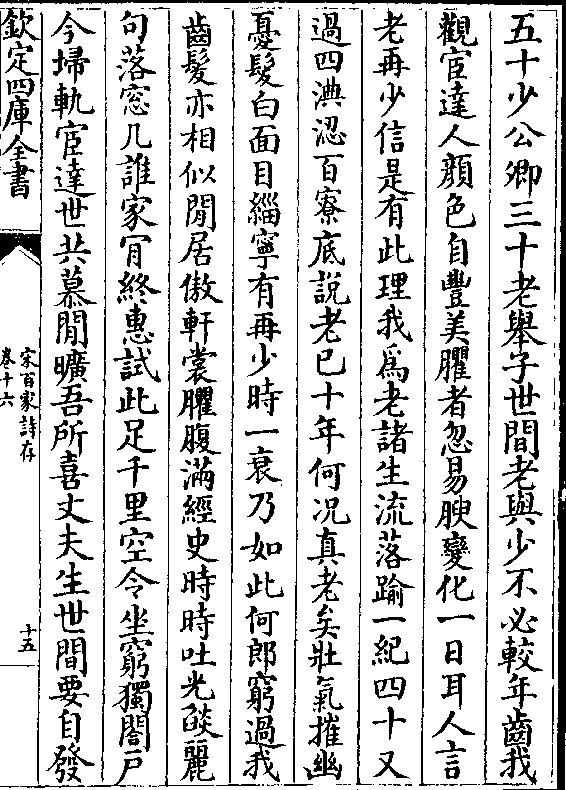 五十少公卿三十老舉子世間老與少不必較年齒我
觀宦達人顏色自豐美臞者忽易腴變化一日耳人言
老再少信是有此理我爲老諸生流落踰一紀四十又
過四淟涊百寮底說老已十年何况真老矣壯氣摧幽
憂髮白面目緇寧有再少時一衰乃如此何郎窮過我
齒髮亦相似閒居傲軒裳臞腹滿經史時時吐光燄麗
句落窓几誰家肎終惠試此足千里空令坐窮獨閤戸
今埽軌宦達世共慕閒曠吾所喜丈夫生世間要自發
欽定四庫全書
宋百家詩存
卷十六
十五